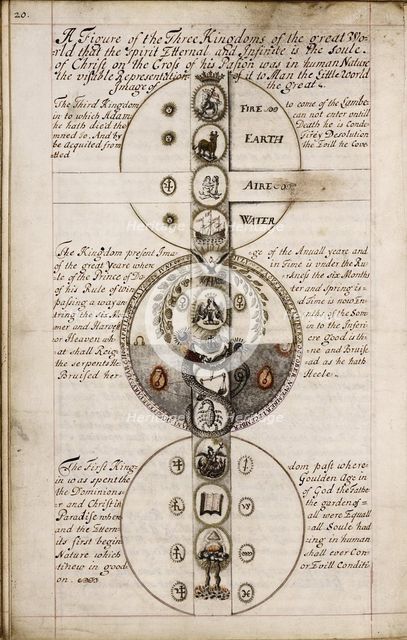 20.
A Figure of the Three Kingdoms of the great Wo-
rld that the Spirit Etternal and Infinite is the Soule
of Christ on the Cross of his Pasion was in human Nature
the visible Representation of it to Man the Little World
Image of the great
The Third Kingdom to come of the Lambe
in to which Adam can not enter untill
he hath died the Death he is Conde
mned to. And by Firey Desolution
be acquited from the Evill he Cove
tted
FIRE
EARTH
AIRE
WATER
The Kingdom present Ima ge of the Anuall yeare and
of the great yeare where in Time is under the Ru
le of the Prince of Da rkness the Six Months
of his Rule of Win ter and Spring is
passing a way and Time is now In
tring the Six Mo nths of the Som
mer and Harves in to the Inferi
or Heaven wh ere good is the
at shall Reig ne and Bruise
the serpents He ad as he hath
Bruised her Heele
The First King dom past where
in was spent the Goulden Age in
the Dominion of God the Fathe
r and Christ in the garden of
Paradise when all were Equall
and the Ettern all Soule had
its first begin ing in human
Nature which shall ever Con
tinew in good or Evill Conditi
on.
Heritage Images